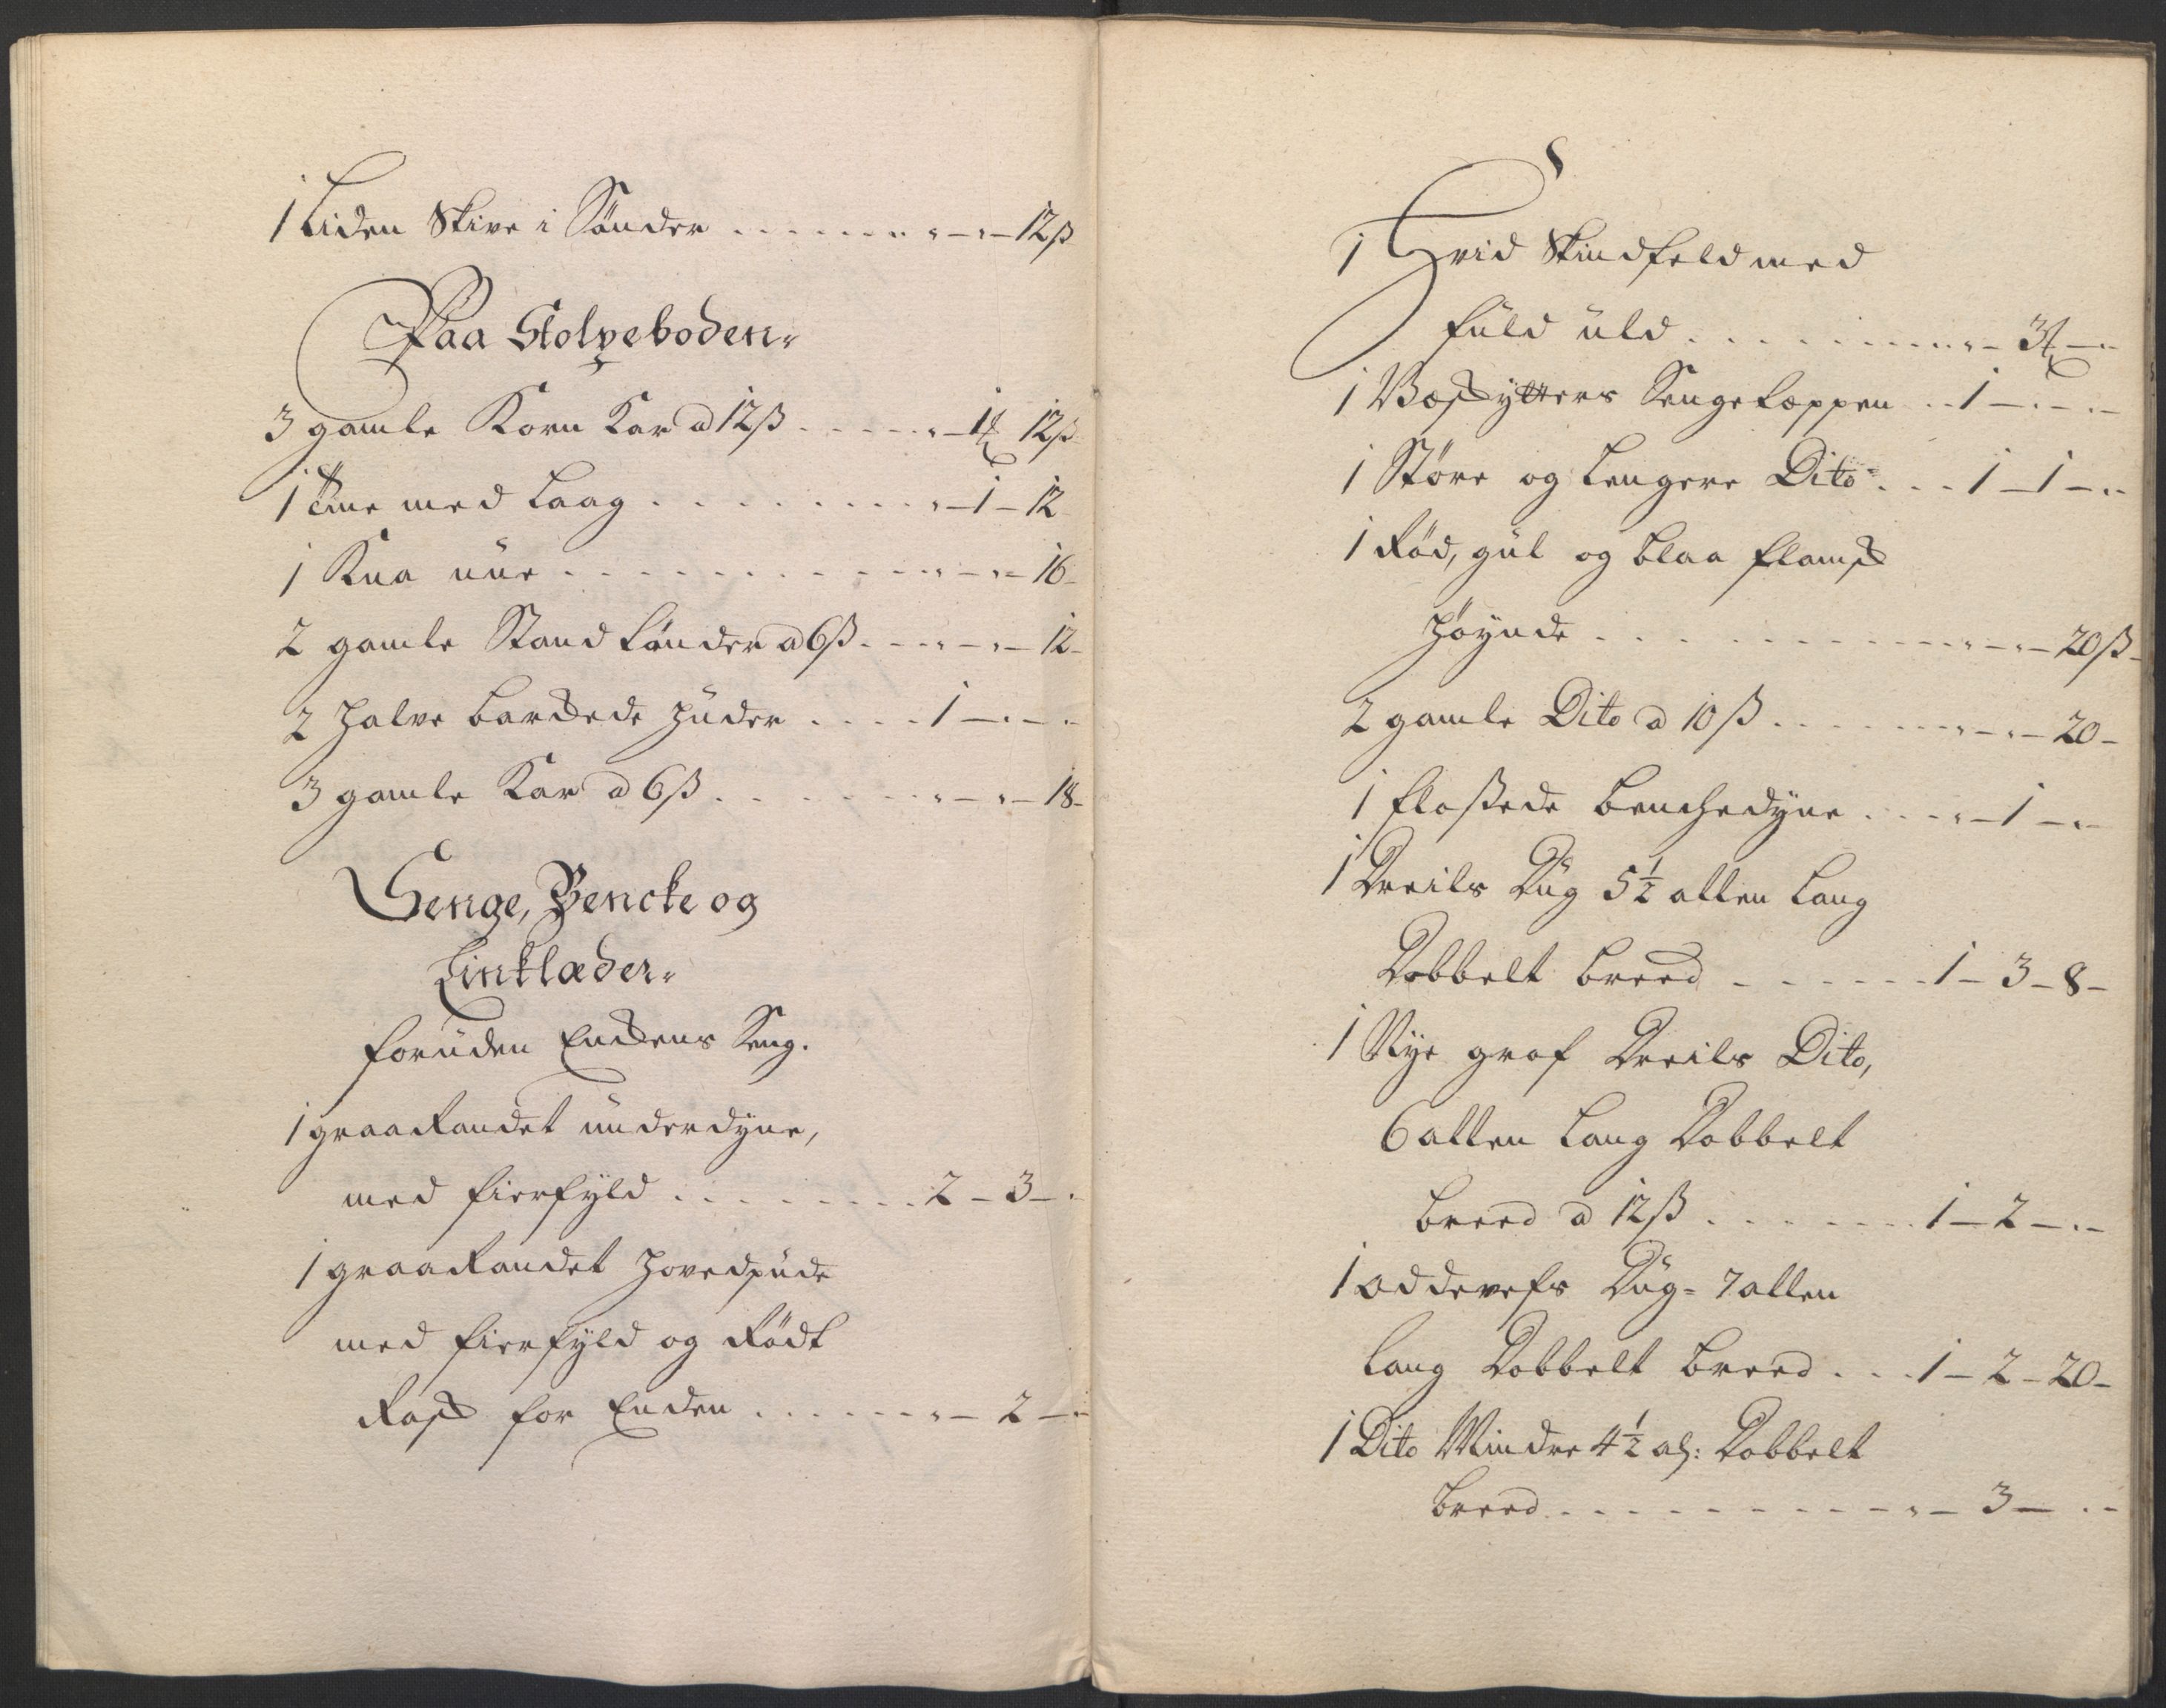 1 Liden Skive i Sønder . . . . . . „ – „ – 12 ß
Paa Stolpeboden„
3 gamle Korn Kar a 12 ß . . . . . „ – 1 ℔ 12 ß
1 Eme med Laag . . . . . . . . „ – 1 – 12
1 Kna uur . . . . . . . . . „ – „ – 16 –
2 gamle Stand tønder a 6 ß . . . „ – „ – 12 –
2 halve barkede huder . . . . 1 – „ – „
3 gamle Kar a 6 ß . . . . . . „ – „ – 18 –
Senge, Bencke og
Linklæder„
foruden Enkens Seng.
1 graarandet underdyne,
med fierfyld . . . . . . . 2 – 3 – „
1 graarandet hovedpude
med fierfyld og Rødt
Rask for Enden . . . . . . „ – 2 – „
1 Hvid Skindfeld med
fuld uld . . . . . . . . . „ – 3 ℔ – „
1 Sengetæppen . . 1 – „ – „ –
1 Støre og Lengere Dito . . . 1 – 1 – „ –
1 Rød, gul og blaa flamsk
høynde . . . . . . . . . . „ – „ – 20 ß –
2 gamle Dito a 10 ß . . . . . . „ – „ – 20 –
1 floßede benchedyne . . . . „ – 1 – „ –
1 Dreils Dug 5 1/2 allen lang
Dobbelt breed . . . . . . 1 – 3 – 8 –
1 Nye grof Dreils Dito,
6 allen lang Dobbelt
breed a 12 ß . . . . . . . 1 – 2 – „ –
1 oddevefs Dug = 7 allen
lang Dobbelt breed . . . 1 – 2 – 20 –
1 Dito Mindre 4 1/2 al: Dobbelt
breed . . . . . . . . . . „ – 3 – „ –